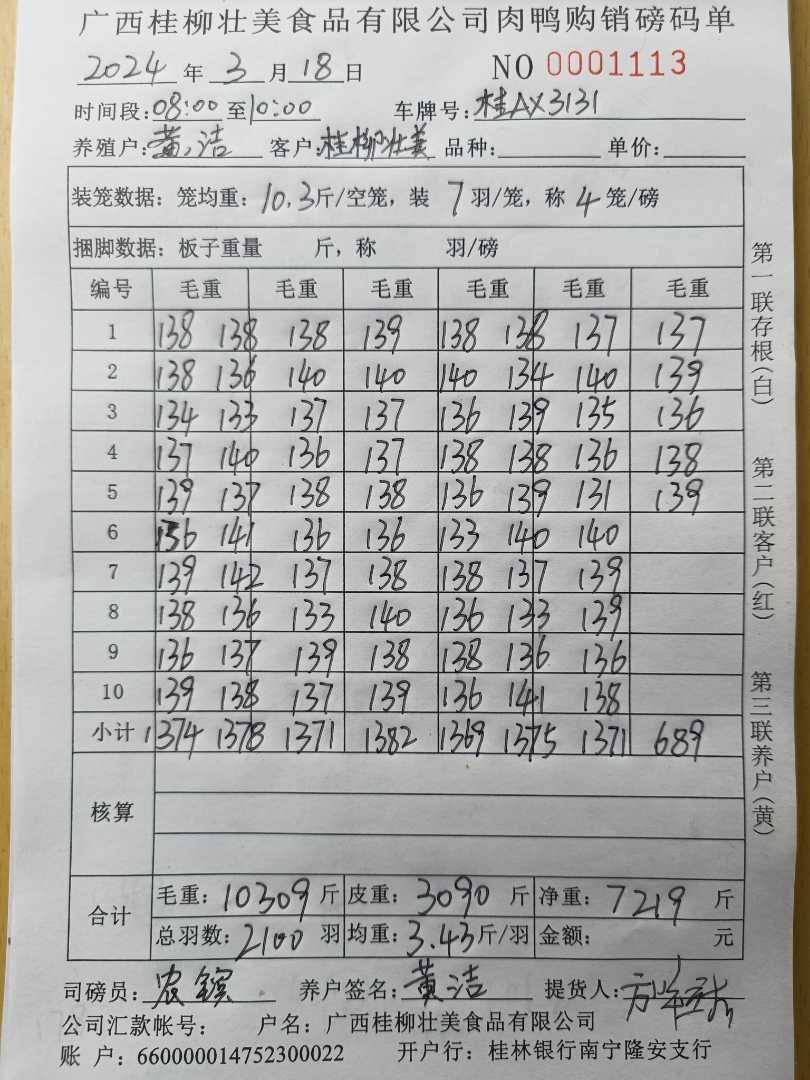 广西桂柳壮美食品有限公司肉鸭购销磅码单
2024 年 3 月 18 日 NO 0001113
时间段: 08:00 至 10:00 车牌号: 桂AX3131
养殖户: 黄洁 客户: 桂柳壮美 品种: 单价:
装笼数据: 笼均重: 10.3斤/空笼, 装 7 羽/笼, 称 4 笼/磅
捆脚数据: 板子重量 斤, 称 羽/磅
编号 毛重 毛重 毛重 毛重 毛重 毛重
1 138 138 138 139 138 138 137 137
2 138 136 140 140 140 134 140 139
3 134 133 137 137 136 139 135 136
4 137 140 136 137 138 138 136 138
5 139 137 138 138 136 139 131 139
6 136 141 136 136 133 140 140
7 139 142 137 138 138 137 139
8 138 136 133 140 136 133 139
9 136 137 139 138 138 136 136
10 139 138 137 139 136 141 138
小计 1374 1378 1371 1382 1369 1375 1371 689
核算
合计 毛重: 10309 斤 皮重: 3090 斤 净重: 7219 斤
总羽数: 2100 羽 均重: 3.43斤/羽 金额: 元
司磅员: 农镔 养户签名: 黄洁 提货人:
公司汇款帐号: 户名: 广西桂柳壮美食品有限公司
账 户: 660000014752300022 开户行: 桂林银行南宁隆安支行
第一联存根(白)
第二联客户(红)
第三联养户(黄)